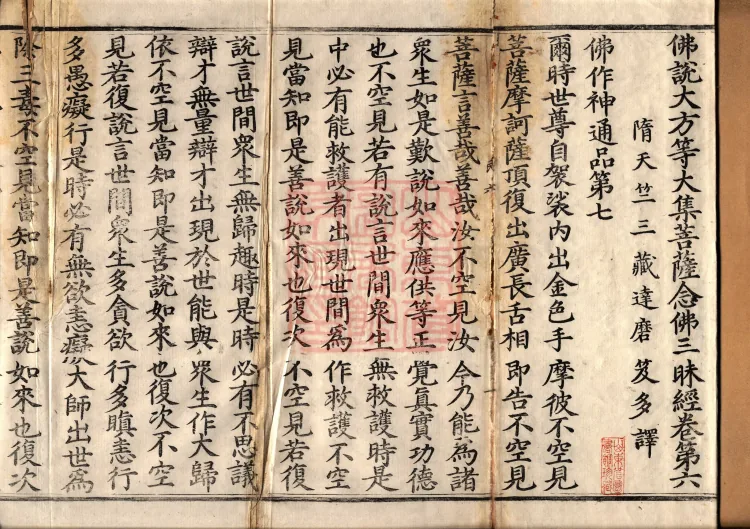 佛說大方等大集菩薩念佛三昧經卷第六
隋天竺三藏達磨笈多譯
佛作神通品第七
爾時世尊自袈裟內出金色手摩彼不空見
菩薩摩訶薩頂復出廣長舌相即告不空見
菩薩言善哉善哉汝不空見汝今乃能爲諸
衆生如是歎說如來應供等正覺真實功德
也不空見若有說言世間衆生無救護時是
中必有能救護者出現世間爲作救護不空
見當知即是善說如來也復次不空見若復
說言世間衆生無歸趣時是時必有不思議
辯才無量辯才出現於世能與衆生作大歸
依不空見當知即是善說如來也復次不空
見若復說言世間衆生多貪欲行多瞋恚行
多愚癡行是時必有無欲恚癡大師出世爲
除三毒不空見當知即是善說如來也復次